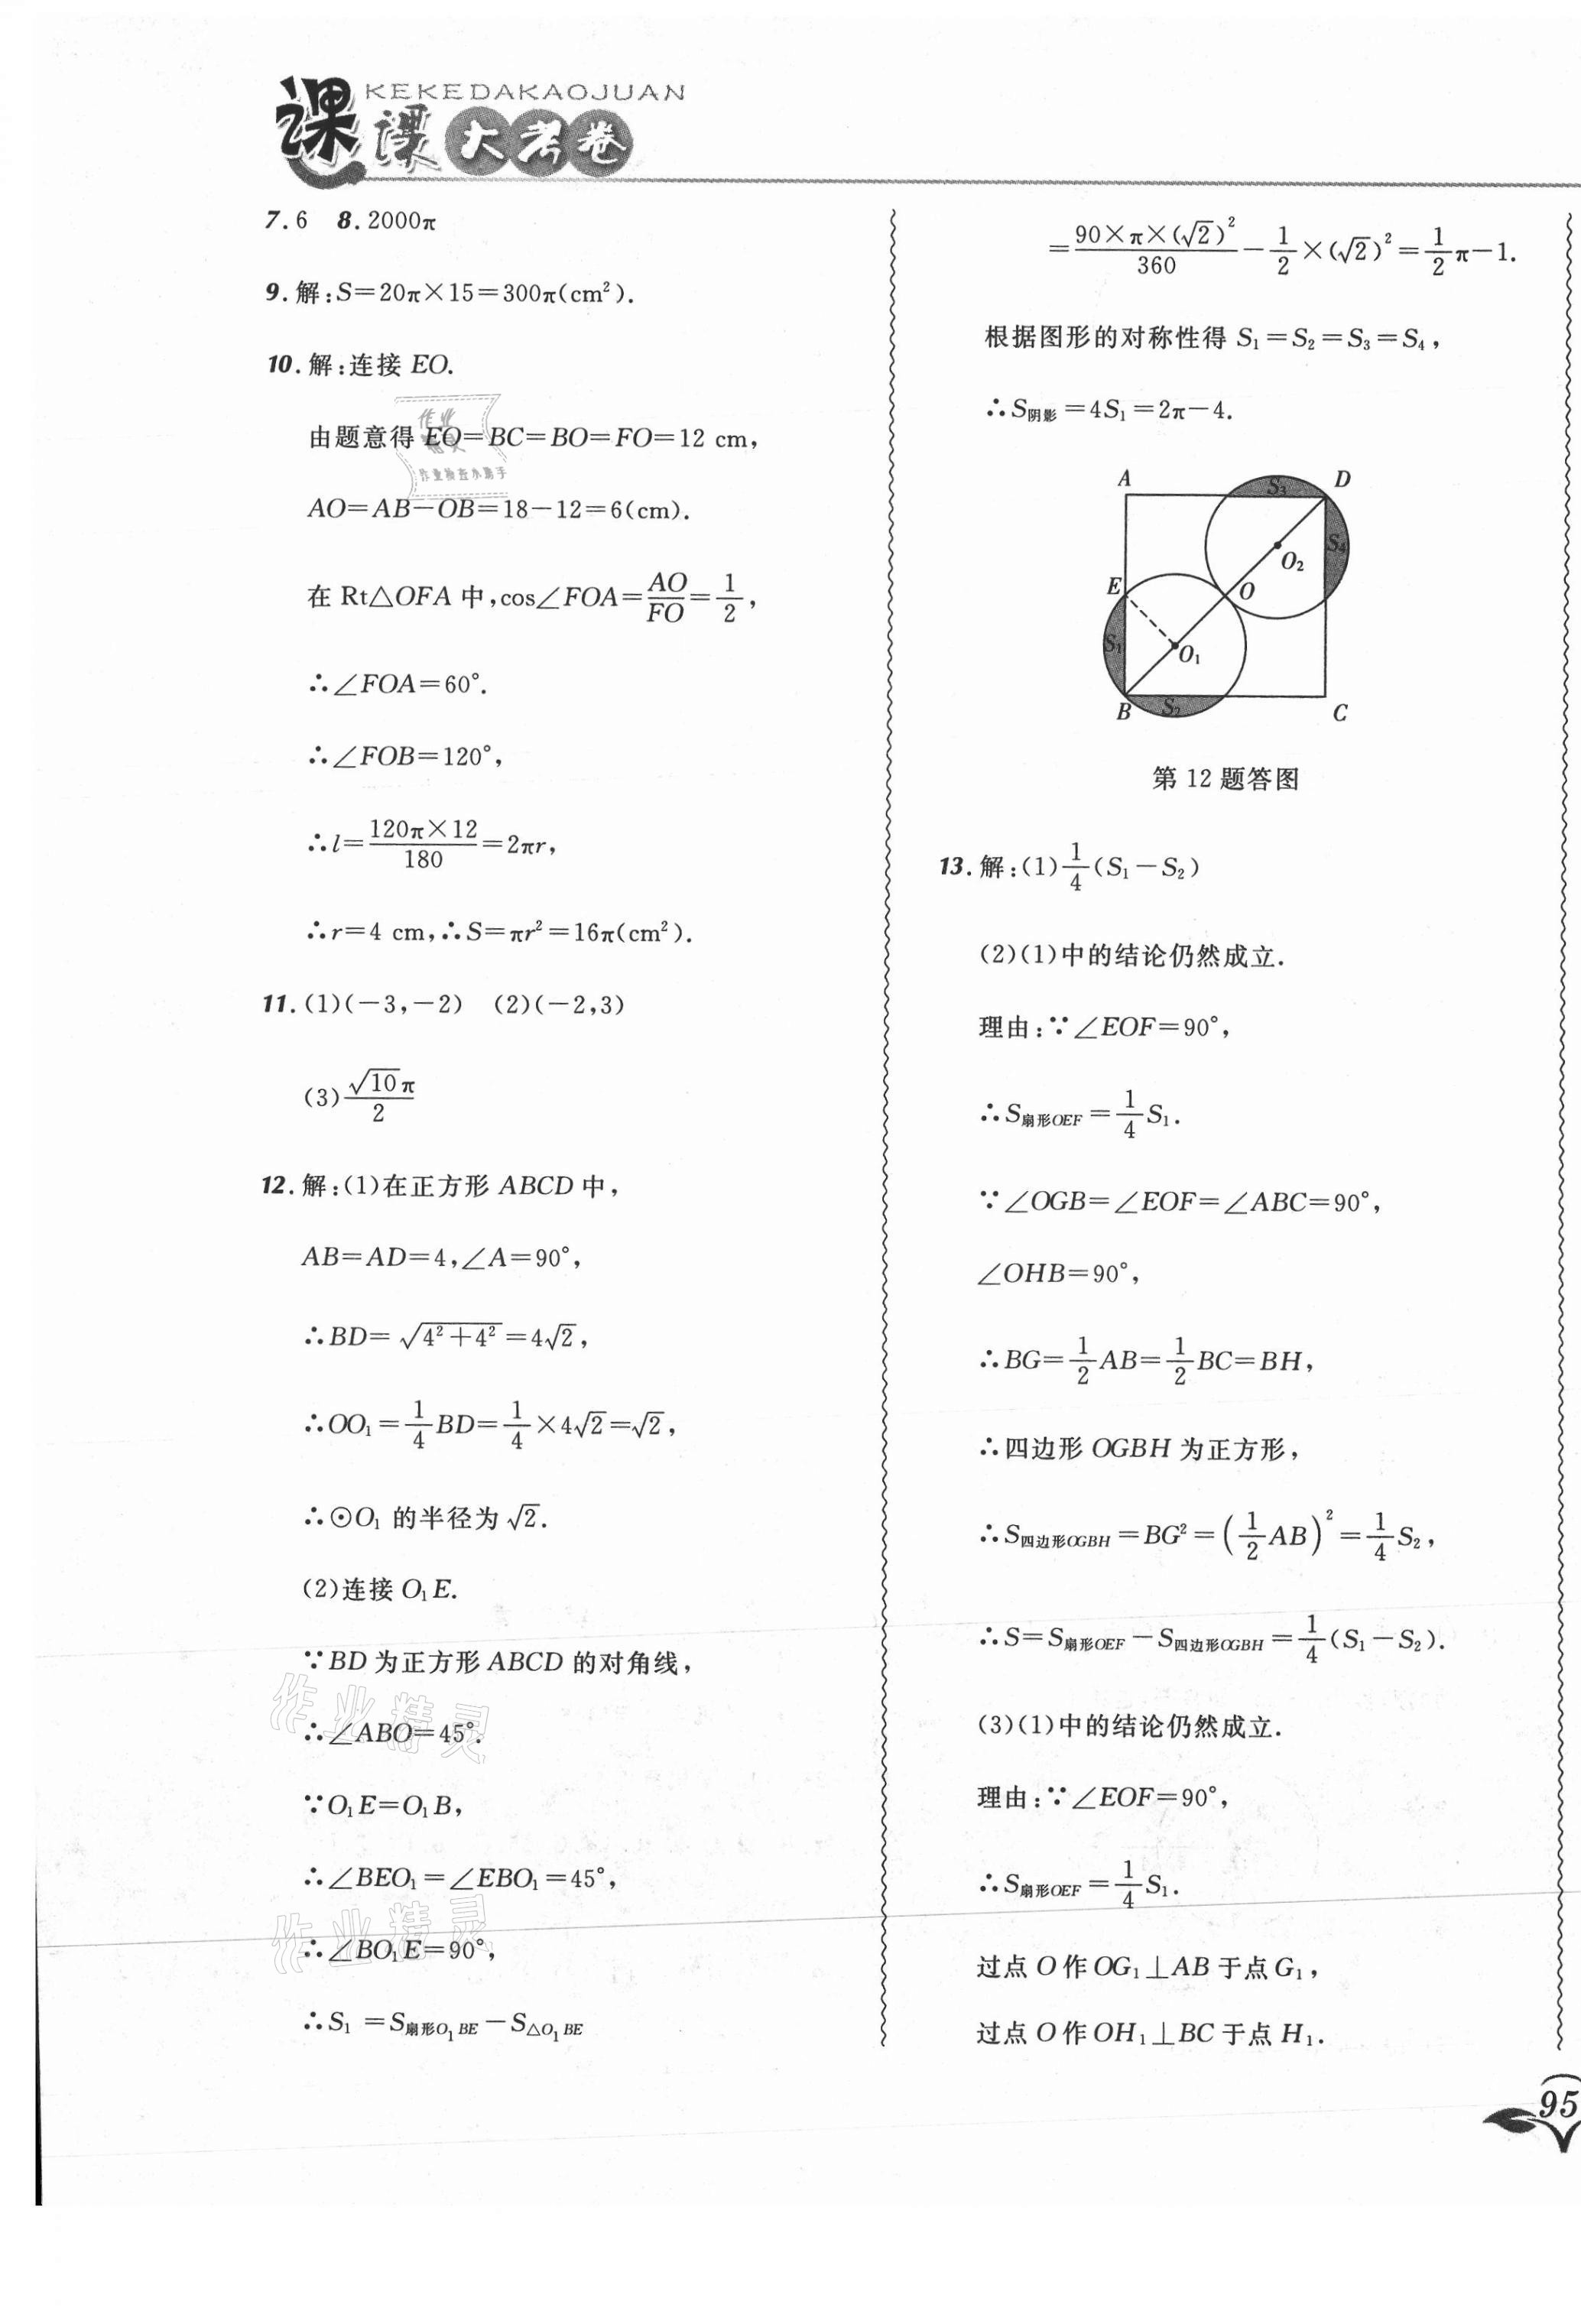 KEKEDAKAOJUAN
课课大考卷
7.6 8.2000π
9.解:S=20π×15=300π(cm²).
10.解:连接 EO.
由题意得 EO=BC=BO=FO=12 cm,
AO=AB-OB=18-12=6(cm).
在 Rt△OFA 中,cos∠FOA=AO/FO=1/2,
∴∠FOA=60°.
∴∠FOB=120°,
∴l=120π×12/180=2πr,
∴r=4 cm,∴S=πr²=16π(cm²).
11.(1)(-3,-2) (2)(-2,3)
(3)√10π/2
12.解:(1)在正方形 ABCD 中,
AB=AD=4,∠A=90°,
∴BD=√(4²+4²)=4√2,
∴OO₁=1/4BD=1/4×4√2=√2,
∴⊙O₁ 的半径为√2.
(2)连接 O₁E.
∵BD 为正方形 ABCD 的对角线,
∴∠ABO=45°.
∵O₁E=O₁B,
∴∠BEO₁=∠EBO₁=45°,
∴∠BO₁E=90°,
∴S₁=S扇形O₁BE-S△O₁BE
=90×π×(√2)²/360-1/2×(√2)²=1/2π-1.
根据图形的对称性得 S₁=S₂=S₃=S₄,
∴S阴影=4S₁=2π-4.
A
S₃
D
S₄
O₂
E
O
S₁
O₁
B
S₂
C
第 12 题答图
13.解:(1)1/4(S₁-S₂)
(2)(1)中的结论仍然成立.
理由:∵∠EOF=90°,
∴S扇形OEF=1/4S₁.
∵∠OGB=∠EOF=∠ABC=90°,
∠OHB=90°,
∴BG=1/2AB=1/2BC=BH,
∴四边形 OGBH 为正方形,
∴S四边形OGBH=BG²=(1/2AB)²=1/4S₂,
∴S=S扇形OEF-S四边形OGBH=1/4(S₁-S₂).
(3)(1)中的结论仍然成立.
理由:∵∠EOF=90°,
∴S扇形OEF=1/4S₁.
过点 O 作 OG₁⊥AB 于点 G₁,
过点 O 作 OH₁⊥BC 于点 H₁.
95
作业精灵
作业检查小助手
作业精灵
作业精灵